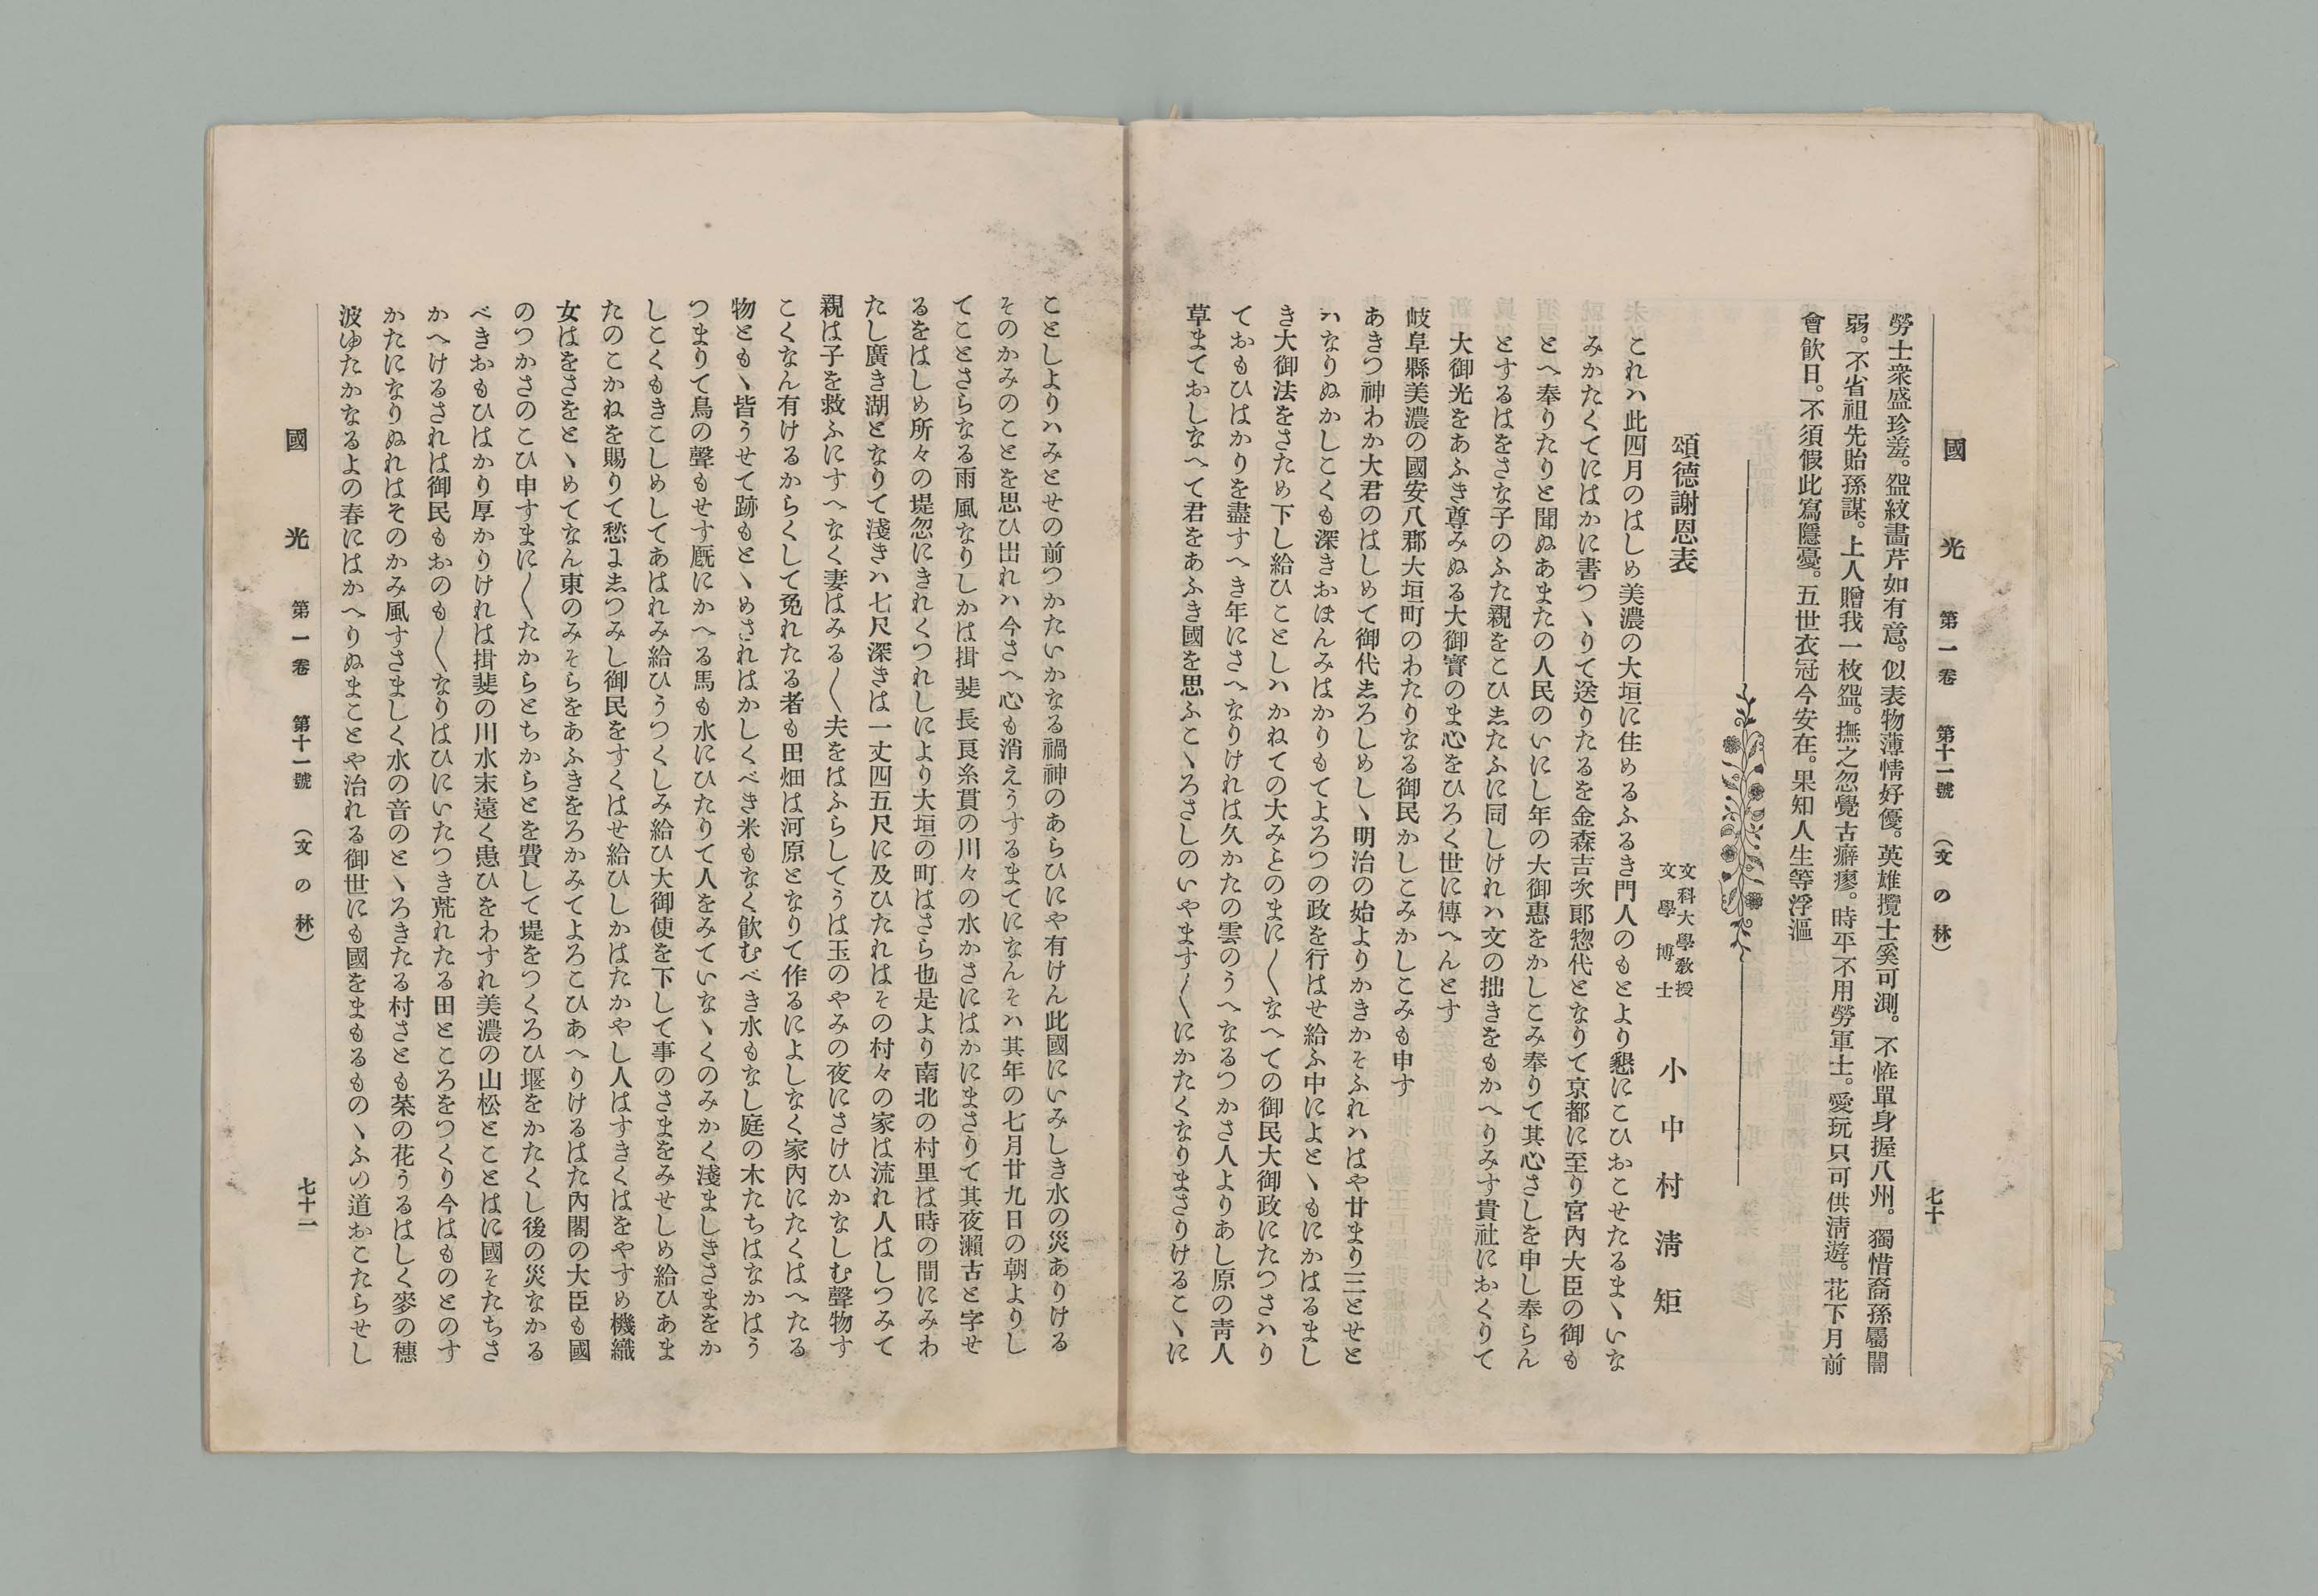 國光 第一卷 第十一號 （文の林） 七十
勞士衆盛珍羞。盌紋畵芹如有意。似表物薄情好優。英雄攬士奚可測。不恠單身握八州。獨惜裔孫屬闇
弱。不省祖先貽孫謀。上人贈我一枚盌。撫之忽覺古癖瘳。時平不用勞軍士。愛玩只可供淸遊。花下月前
會飮日。不須假此寫隱憂。五世衣冠今安在。果知人生等浮漚
頌德謝恩表
文科大學敎授
文學博士
小中村淸矩
これハ此四月のはしめ美濃の大垣に住めるふるき門人のもとより懇にこひおこせたるまヽいな
みかたくてにはかに書つヽりて送りたるを金森吉次郞惣代となりて京都に至り宮內大臣の御も
とへ奉りたりと聞ぬあまたの人民のいにし年の大御惠をかしこみ奉りて其心さしを申し奉らん
とするはをさな子のふた親をこひ志たふに同しけれハ文の拙きをもかへりみす貴社におくりて
大御光をあふき尊みぬる大御寳のま心をひろく世に傳へんとす
岐阜縣美濃の國安八郡大垣町のわたりなる御民かしこみかしこみも申す
あきつ神わか大君のはしめて御代志ろしめしヽ明治の始よりかきかそふれハはや廿まり三とせと
ハなりぬかしこくも深きおほんみはかりもてよろつの政を行はせ給ふ中によとヽもにかはるまし
き大御法をさため下し給ひことしハかねての大みとのまに〱なへての御民大御政にたつさハり
ておもひはかりを盡すへき年にさへなりけれは久かたの雲のうへなるつかさ人よりあし原の靑人
草まておしなへて君をあふき國を思ふこヽろさしのいやます〱にかたくなりまさりけるこヽに
ことしよりハみとせの前つかたいかなる禍神のあらひにや有けん此國にいみしき水の災ありける
そのかみのことを思ひ出れハ今さへ心も消えうするまてになんそハ其年の七月廿九日の朝よりし
てことさらなる雨風なりしかは揖斐長良糸貫の川々の水かさにはかにまさりて其夜瀨古と字せ
るをはしめ所々の堤忽にきれくつれしにより大垣の町はさら也是より南北の村里は時の間にみわ
たし廣き湖となりて淺きハ七尺深きは一丈四五尺に及ひたれはその村々の家は流れ人はしつみて
親は子を救ふにすへなく妻はみる〱夫をはふらしてうは玉のやみの夜にさけひかなしむ聲物す
こくなん有けるからくして免れたる者も田畑は河原となりて作るによしなく家內にたくはへたる
物ともヽ皆うせて跡もとヽめされはかしくべき米もなく飮むべき水もなし庭の木たちはなかはう
つまりて鳥の聲もせす厩にかへる馬も水にひたりて人をみていなヽくのみかく淺ましきさまをか
しこくもきこしめしてあはれみ給ひうつくしみ給ひ大御使を下して事のさまをみせしめ給ひあま
たのこかねを賜りて愁に志つみし御民をすくはせ給ひしかはたかやし人はすきくはをやすめ機織
女はをさをとヽめてなん東のみそらをあふきをろかみてよろこひあへりけるはた內閣の大臣も國
のつかさのこひ申すまに〱たからとちからとを費して堤をつくろひ堰をかたくし後の災なかる
べきおもひはかり厚かりけれは揖斐の川水末遠く患ひをわすれ美濃の山松とことはに國そたちさ
かへけるされは御民もおのも〱なりはひにいたつき荒れたる田ところをつくり今はものとのす
かたになりぬれはそのかみ風すさましく水の音のとヽろきたる村さとも菜の花うるはしく麥の穗
波ゆたかなるよの春にはかへりぬまことや治れる御世にも國をまもるものヽふの道おこたらせし
國光 第一卷 第十一號 （文の林） 七十一